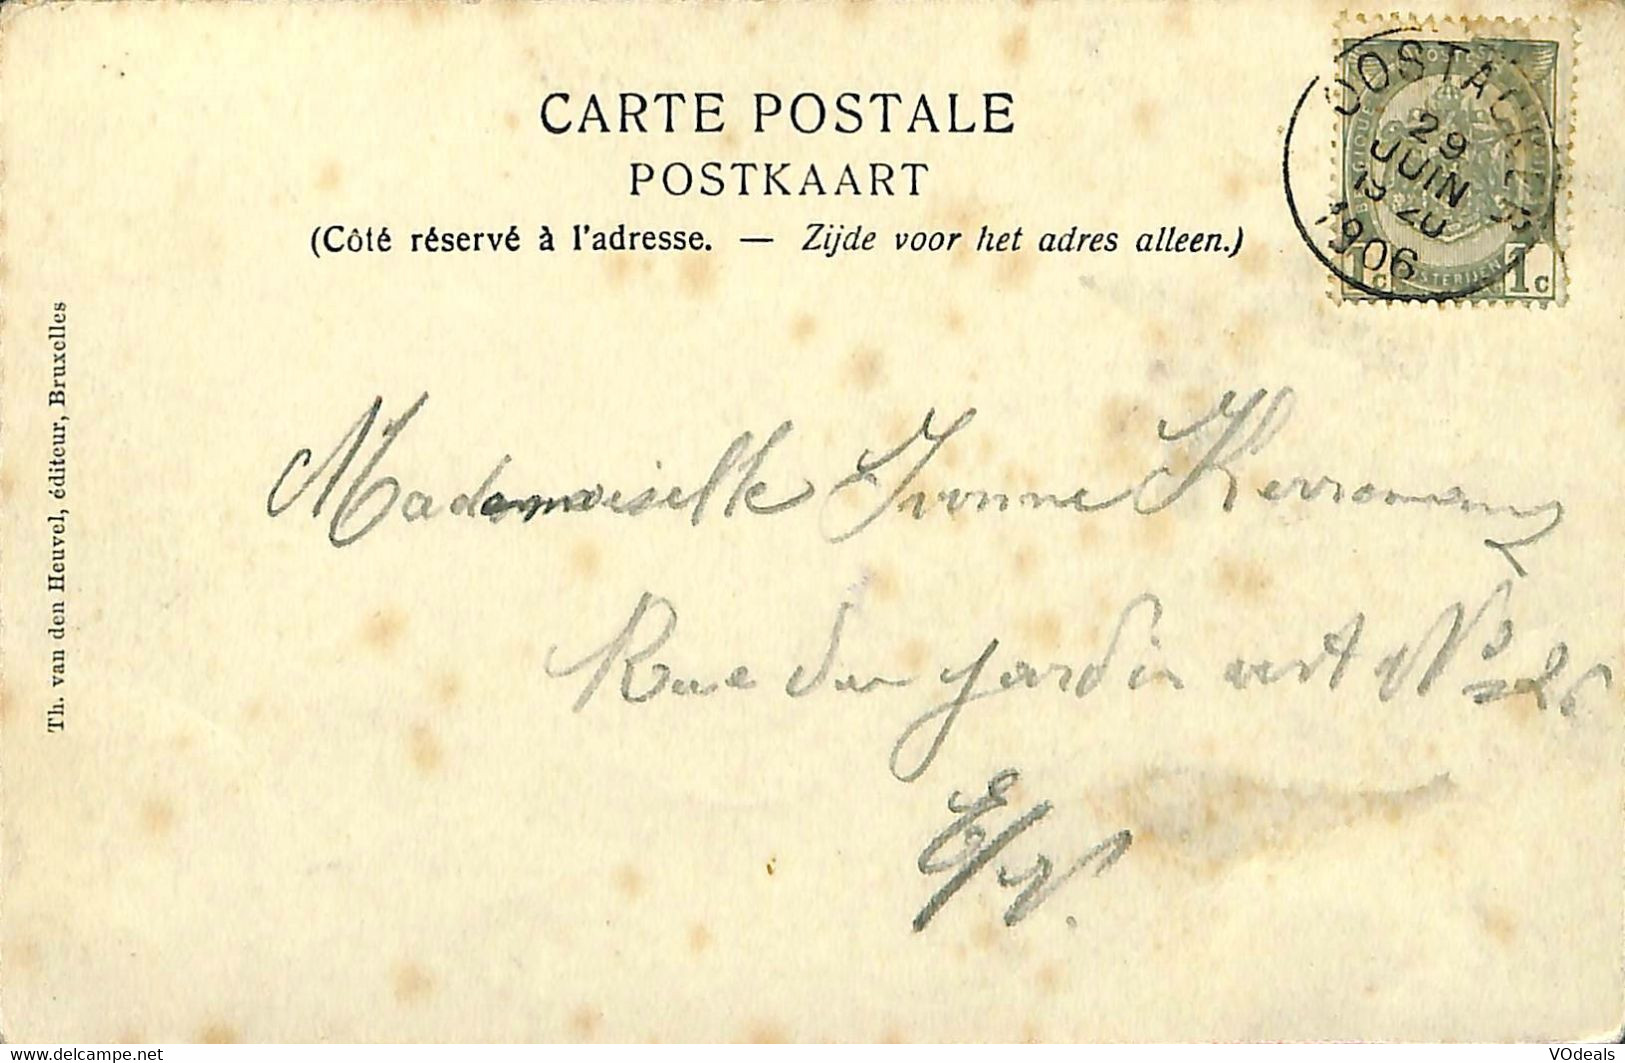 CARTE POSTALE
POSTKAART
(Côté réservé à l'adresse. — Zijde voor het adres alleen.)
OOSTACKER
29
JUIN
1906
POSTES
BELGIQUE
1c 1c
Th. van den Heuvel, éditeur, Bruxelles
Mademoiselle Yvonne
Rue du jardin vert No 26
E/V.
www.delcampe.net
VOdeals